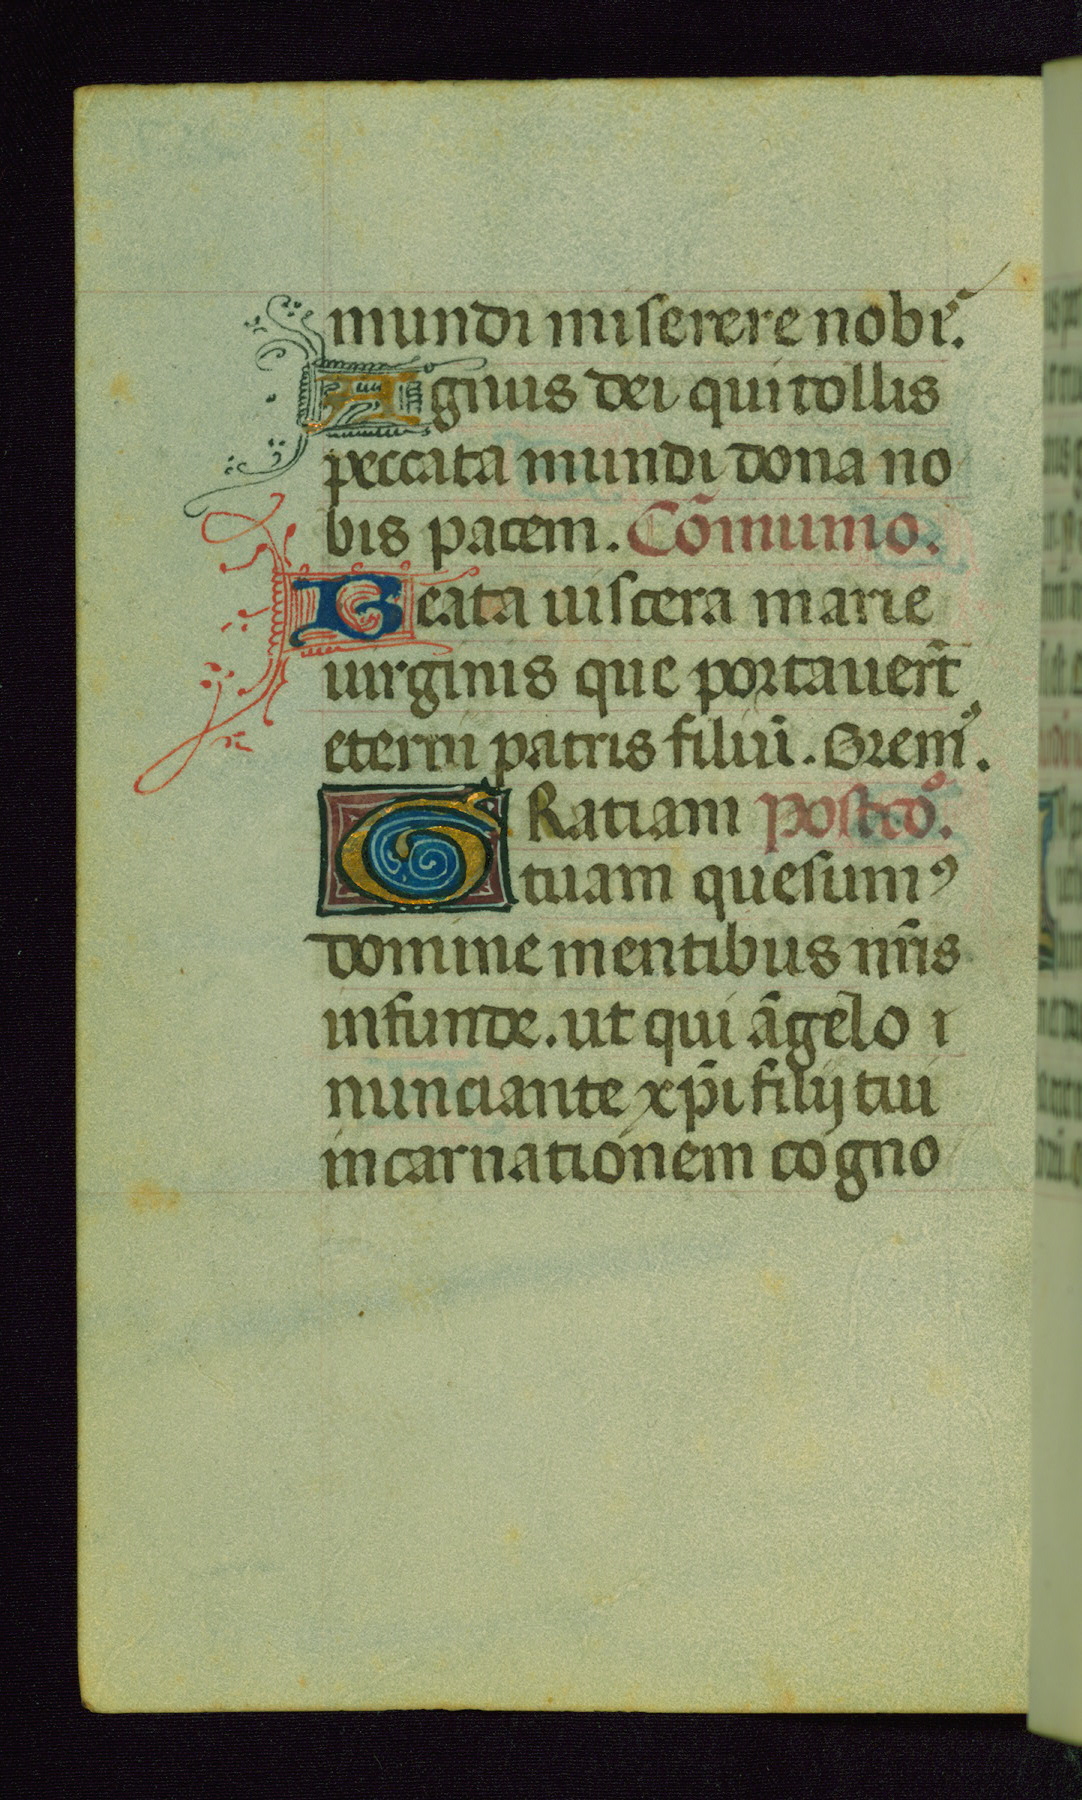 mundi miserere nobi᷒.
Agnus dei qui tollis
peccata mundi dona no
bis pacem. Cōmunio.
Beata uiscera marie
uirginis que portauer̄t
eterni patris filiū. Orem᷒.
GRatiam postcō.
tuam quesumꝰ
domine mentibus nr̄is
infunde. ut qui āgelo i
nunciante xp̄i filij tui
incarnationem cogno